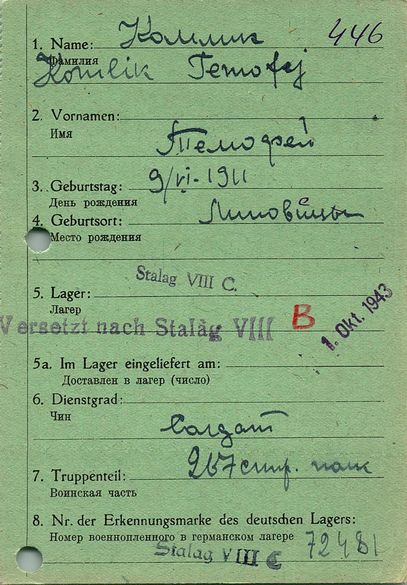 446
1. Name: Комлик
Фамилия
Komlik Temofej
2. Vornamen:
Имя
Темофей
3. Geburtstag: 9/VI-1911
День рождения
4. Geburtsort:
Место рождения
Stalag VIII C.
5. Lager:
Лагер
Versetzt nach Stalag VIII B
1. Okt. 1943
5a. Im Lager eingeliefert am:
Доставлен в лагер (число)
6. Dienstgrad:
Чин
Солдат
267 стр. полк
7. Truppenteil:
Воинская часть
8. Nr. der Erkennungsmarke des deutschen Lagers:
Номер военнопленного в германском лагере 72481
Stalag VIII C